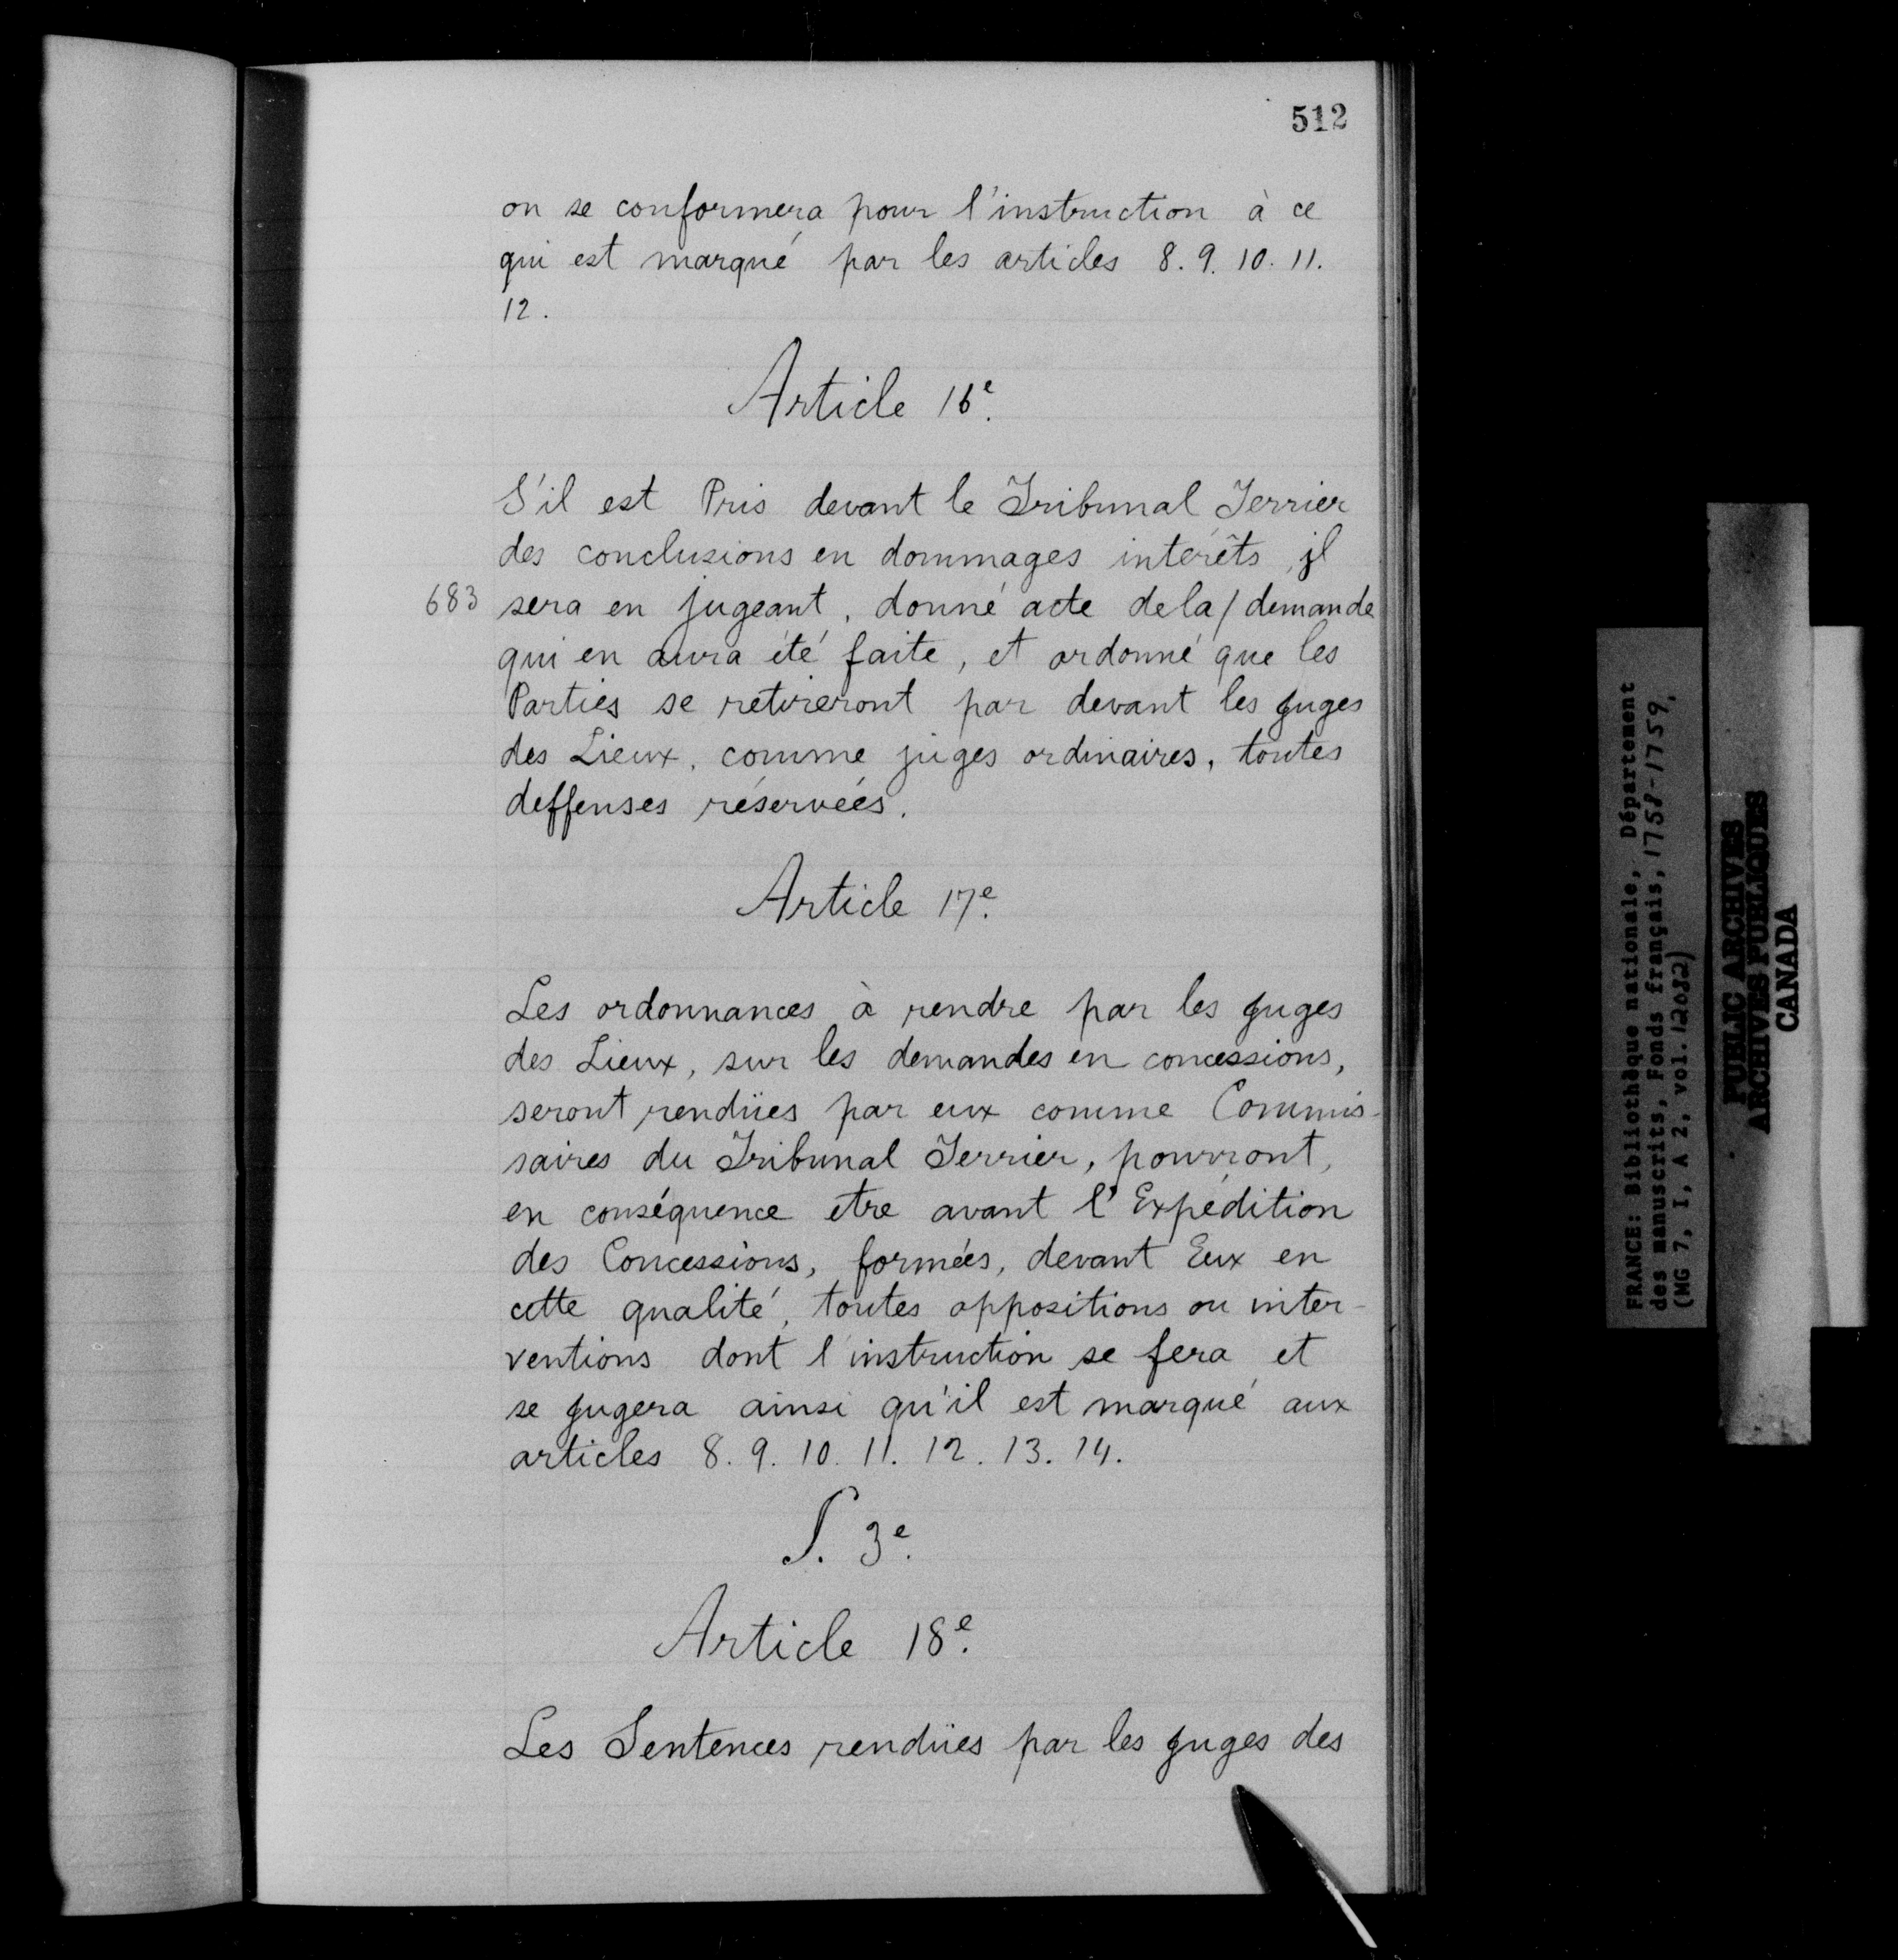 512
on se conformera pour l'instruction à ce
qui est marqué par les articles 8. 9. 10. 11.
12.
Article 16e.
S'il est Pris devant le Tribunal Terrier
des conclusions en dommages intérêts, jl
683 sera en jugeant, donné acte dela/demande
qui en aura été faite, et ordonné que les
Parties se retireront par devant les juges
des Lieux, comme juges ordinaires, toutes
deffenses réservées.
Article 17e.
Les ordonnances à rendre par les juges
des Lieux, sur les demandes en concessions,
seront rendües par eux comme Commis-
saires du Tribunal Terrier, pourront,
en conséquence etre avant l'Expédition
des Concessions, formées, devant Eux en
cette qualité, toutes oppositions ou inter-
ventions dont l'instruction se fera et
se jugera ainsi qu'il est marqué aux
articles 8. 9. 10. 11. 12. 13. 14.
S. 3e.
Article 18e.
Les Sentences rendües par les juges des
FRANCE: Bibliothèque nationale, Département
des manuscrits, Fonds français, 1758-1759,
(MG 7, I, A 2, vol. 12082)
PUBLIC ARCHIVES
ARCHIVES PUBLIQUES
CANADA